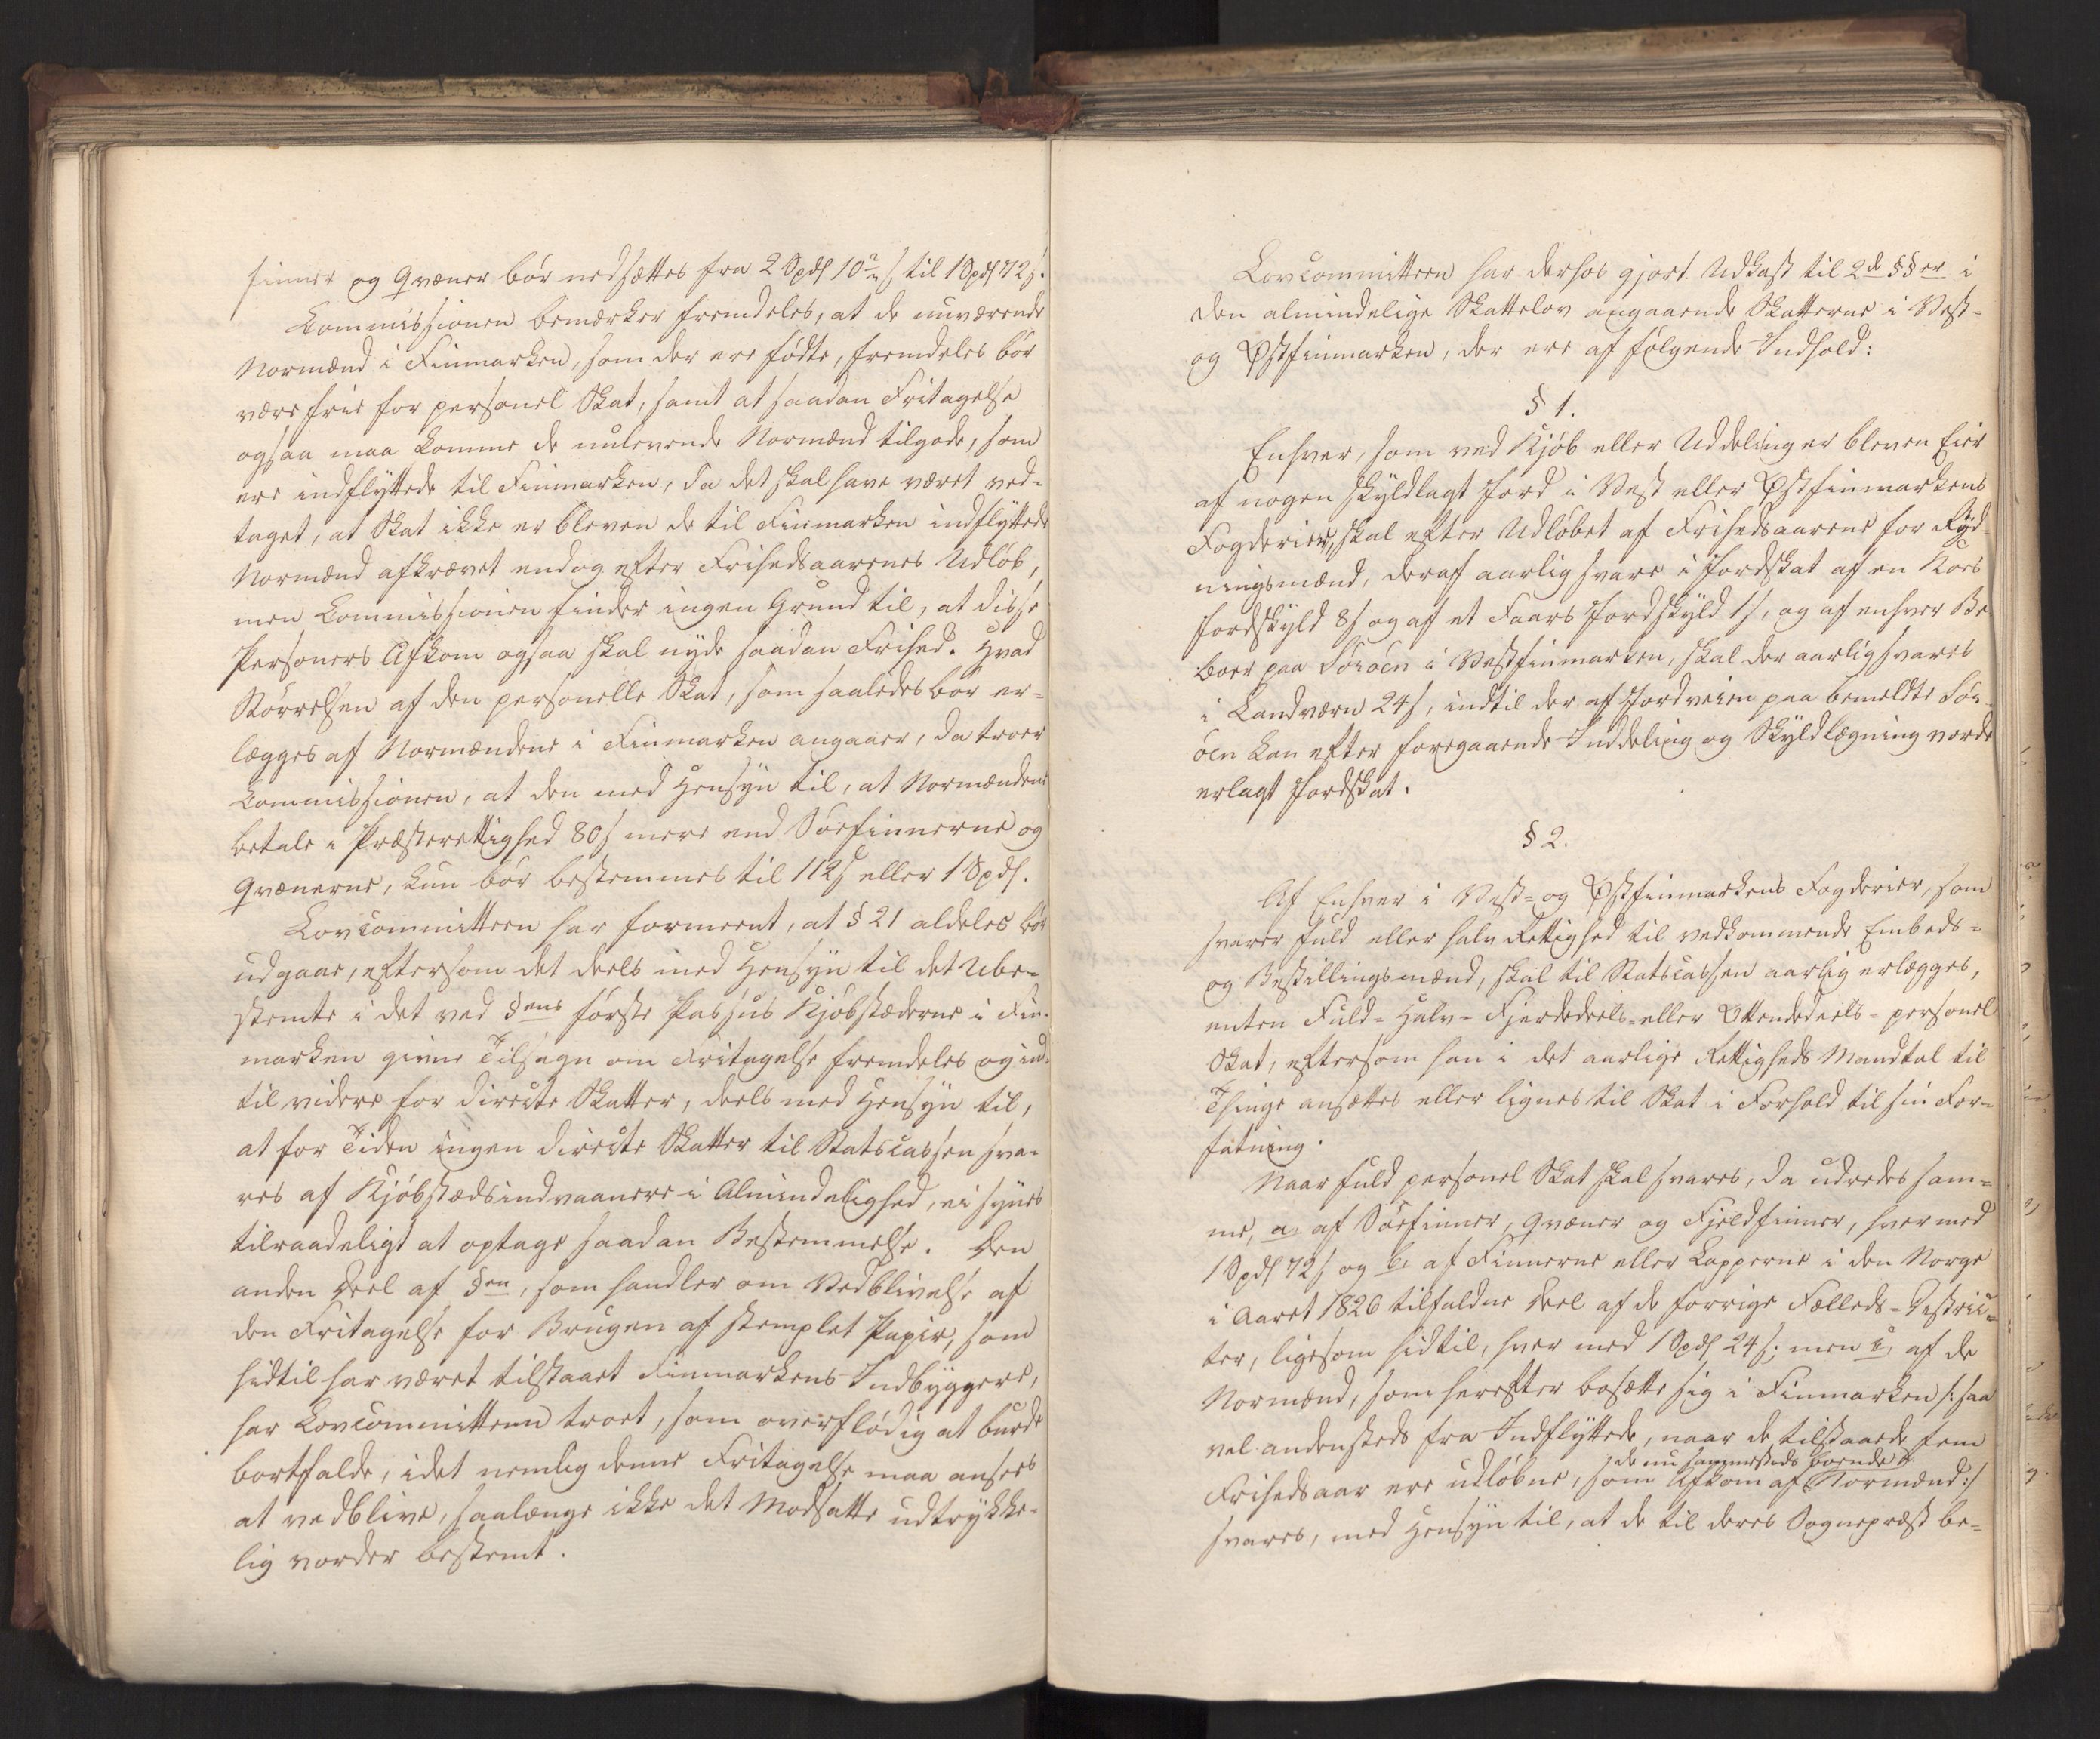 finner og Qvæner bör nedsættes fra 2 Spdl 10 ß til 1 Spdl 72 ß.
Commissionen bemærker fremdeles, at de nuværende
Normænd i Finmarken, som der ere födte, fremdeles bör
være frie for personel Skat, samt at saadan Fritagelse
ogsaa maa komme de nulevende Normænd tilgode, som
ere indflyttede til Finmarken, da det skal have været ved-
taget, at Skat ikke er bleven de til Finmarken indflyttede
Normænd afkrævet endog efter Frihedsaarenes Udlöb,
men Commissionen finder ingen Grund til, at disse
Personers Afkom ogsaa skal nyde saadan Frihed. Hvad
Störrelsen af den personelle Skat, som saaledes bör er-
lægges af Normændene i Finmarken angaaer, da troer
Commissionen, at den med Hensyn til, at Normændene
betale i Præsterettighed 80 ß mere end Söefinnerne og
Qvænerne, kun bör bestemmes til 112 ß eller 1 Spdl.
Lovcommitteen har formeent, at § 21 aldeles bör
udgaae, eftersom det deels med Hensyn til det Ube-
stemte i det ved §ens förste Passus Kjöbstæderne i Fin-
marken givne Tilsagn om Fritagelse fremdeles og ind-
til videre for directe Skatter, deels med Hensyn til,
at for Tiden ingen directe Skatter til Statscassen sva-
res af Kjöbstædsindvaanere i Almindelighed, ei synes
tilraadeligt at optage saadan Bestemmelse. Den
anden Deel af §en, som handler om Vedblivelse af
den Fritagelse for Brugen af stemplet Papir, som
hidtil har været tilstaaet Finmarkens Indbyggere,
har Lovcommitteen troet, som overflödig at burde
bortfalde, idet nemlig denne Fritagelse maa ansees
at vedblive, saalænge ikke det Modsatte udtrykke-
lig vorder bestemt.
Lovcommitteen har derhos gjort Udkast til 2de §§er i
den almindelige Skattelov angaaende Skatterne i Vest-
og Östfinmarken, der ere af fölgende Indhold:
§ 1.
Enhver, som ved Kjöb eller Uddeling er bleven Eier
af nogen skyldlagt Jord i Vest eller Östfinmarkens
Fogderier, skal efter Udlöbet af Frihedsaarene for Ryd-
ningsmænd, deraf aarlig svare i Jordskat af en Koes
Jordskyld 8 ß og af et Faars Jordskyld 1 ß, og af enhver Be-
boer paa Söröen i Vestfinmarken, skal der aarlig svares
i Landværn 24 ß, indtil der af Jordveien paa bemeldte Sör-
öen kan efter foregaaende Inddeling og Skyldlægning vorde
erlagt Jordskat.
§ 2.
Af Enhver i Vest- og Östfinmarkens Fogderier, som
svarer fuld eller halv Rettighed til vedkommende Embeds-
og Bestillingsmænd, skal til Statscassen aarlig erlægges,
enten Fuld- Halv- Fjerdedeels- eller Ottendedeels- personel
Skat, eftersom han i det aarlige Rettigheds Mandtal til
Thinge ansættes eller lignes til Skat i Forhold til sin For-
fatning.
Naar fuld personel Skat skal svares, da udredes sam-
me, a, af Söefinner, Qvæner og Fjeldfinner, hver med
1 Spdl 72 ß og b, af Finnerne eller Lapperne i den Norge
i Aaret 1826 tilfaldne Deel af de forrige Fælleds-Distric-
ter, ligesom hidtil, hver med 1 Spdl 24 ß; men c, af de
Normænd, som herefter bosætte sig i Finmarken /: saa
vel andensteds fra Indflyttede, naar de tilstaaede fem
de nu sammesteds boende
Frihedsaar ere udlöbne, som Afkom af Normænd :/
svares, med Hensyn til, at de til deres Sognepræst be-